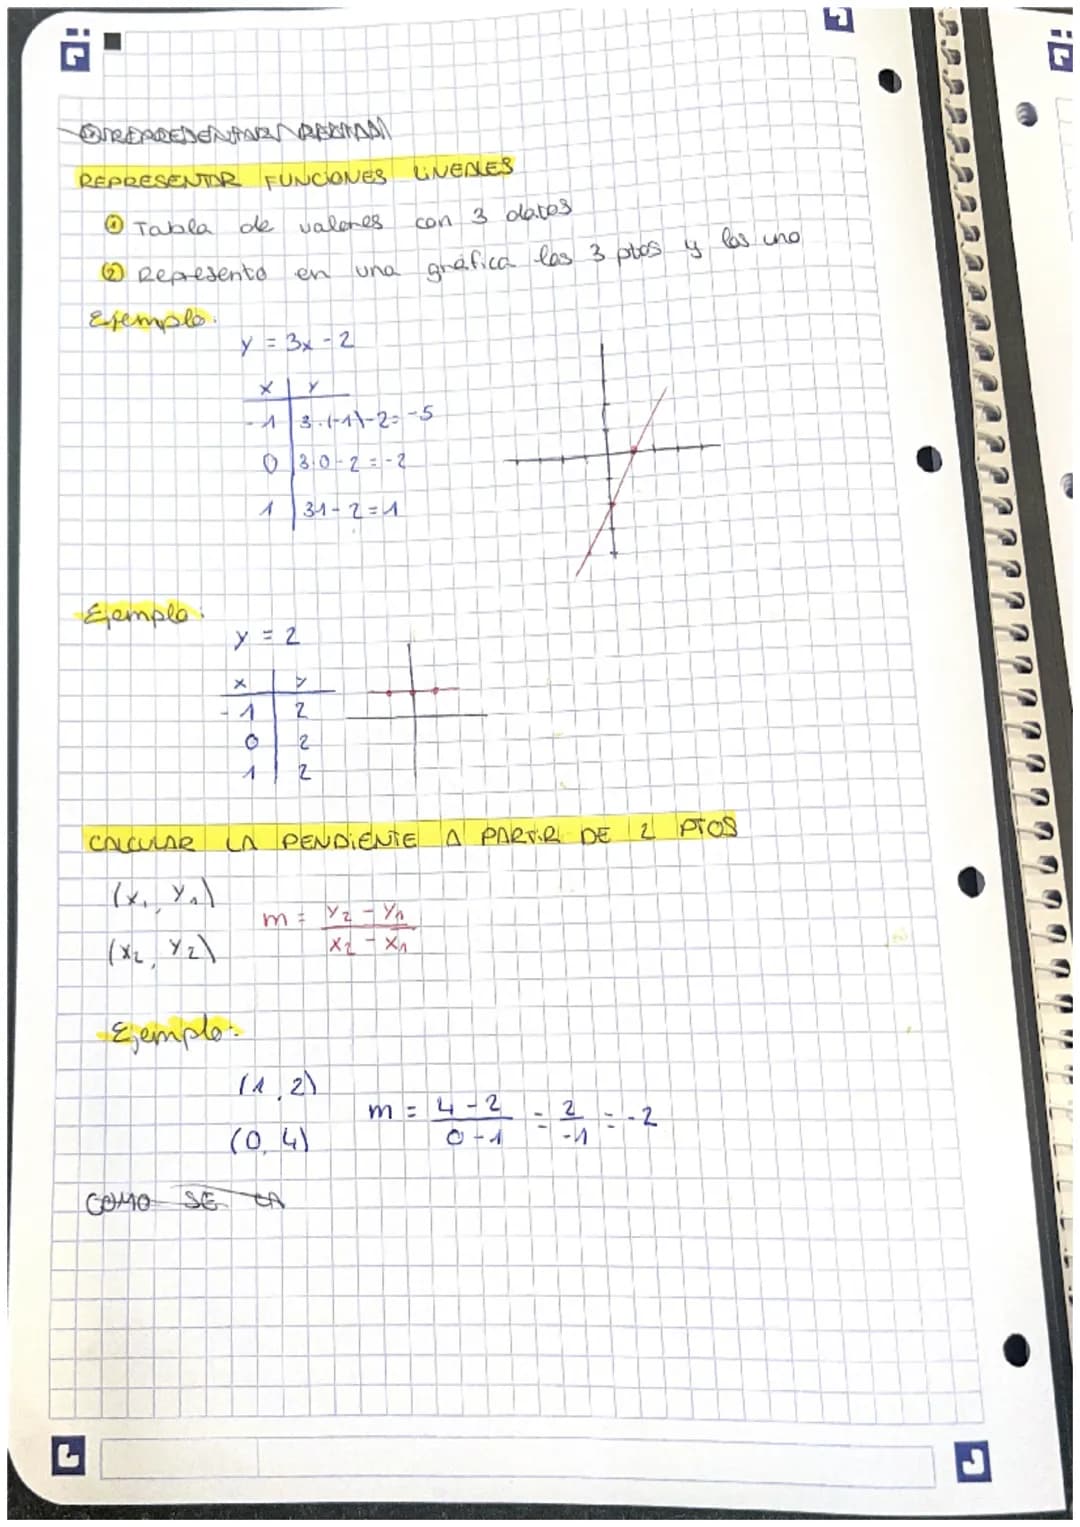 REPRESENTAR FUNCIONES LINEALES
① Tabla de valores con 3 datos
② Represento en una gráfica los 3 ptos y los uno
Ejemplo:
y = 3x - 2
x | y
-1 | 3·(-1)-2=-5
0 | 3·0-2=-2
1 | 3·1-2=1
Ejemplo:
y = 2
x | y
-1 | 2
0 | 2
1 | 2
CALCULAR LA PENDIENTE A PARTIR DE 2 PTOS
(x₁, y₁)
(x₂, y₂)
m = (y₂ - y₁)/(x₂ - x₁)
Ejemplo:
(1, 2)
(0, 4)
m = (4-2)/(0-1) = 2/-1 = -2
COMO SE CA